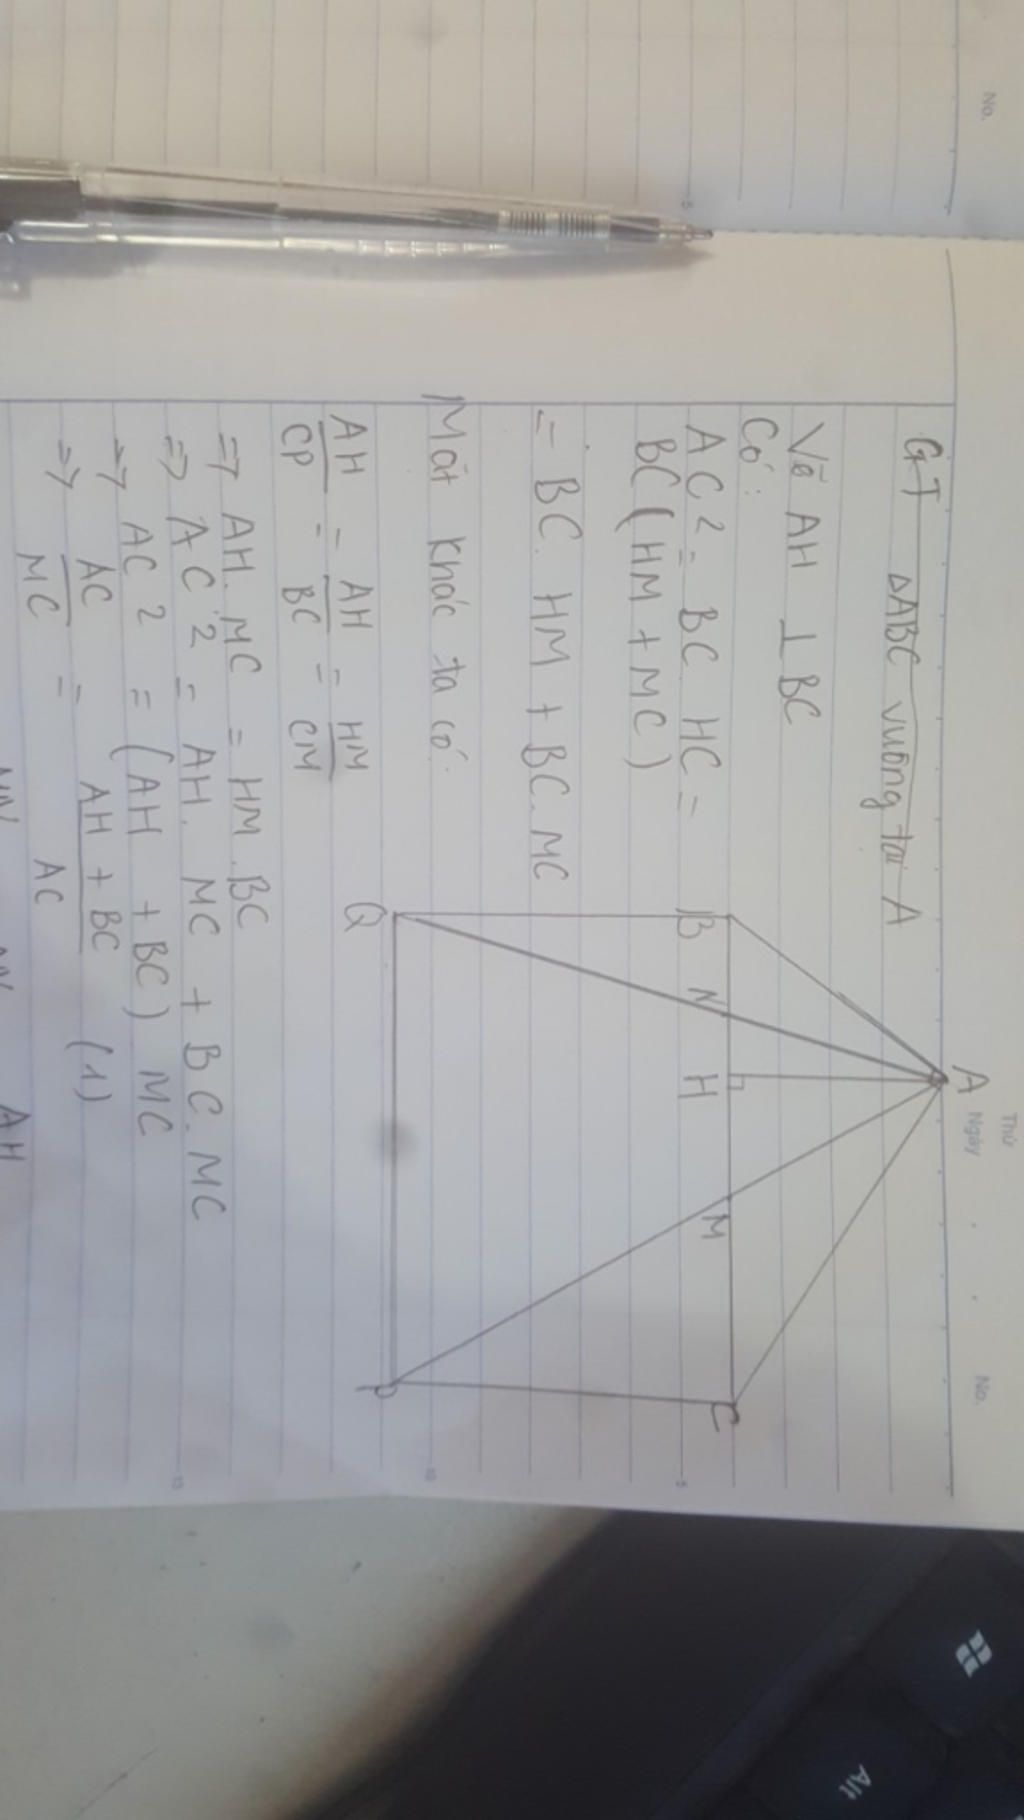 No.
Thứ
Ngày
No.
GT ΔABC vuông tại A
Vẽ AH ⊥ BC
Có:
AC² = BC. HC =
BC (HM + MC)
= BC. HM + BC. MC
Mặt khác ta có:
AH/CP = AH/BC = HM/CM
=> AH. MC = HM. BC
=> AC² = AH. MC + BC. MC
=> AC² = (AH + BC) MC
=> AC/MC = (AH + BC)/AC (1)
AH
A
B
N
H
M
C
Q
P
5
10
15
Alt